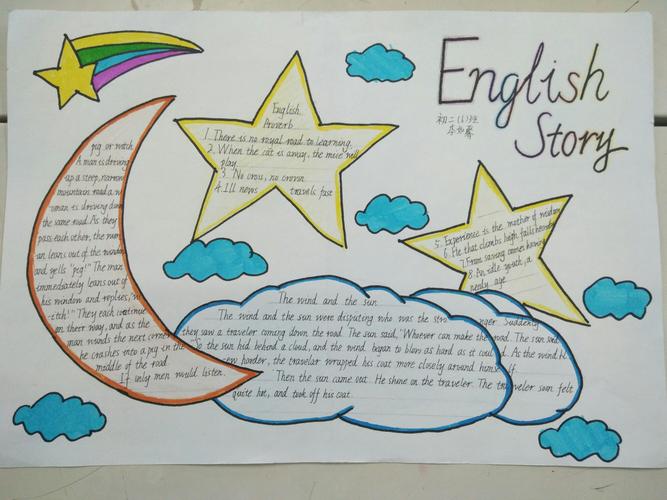 English
Story
初二(1)班
English
Proverb
1. There is no royal road to learning.
2. When the cat is away, the mice will
play.
3. No cross, no crown
4. Ill news travels fast
5. Experience is the mother of wisdom
6. He that climbs high falls heavily
7. From saving comes having
8. An idle youth, a
needy age
pig or witch
A man is driving
up a steep, narrow
mountain road. A w
oman is driving down
the same road. As they
pass each other, the wom
an leans out of the window
and yells "pig!" The man
immediately leans out of
his window and replies, "w
itch!" They each continue
on their way, and as the
man rounds the next corner
he crashes into a pig in the
middle of the road.
If only men would listen.
The wind and the sun
The wind and the sun were disputing who was the stronger. Suddenly
they saw a traveler coming down the road. The sun said, "Whoever can make the road. The sun
So the sun hid behind a cloud, and the wind began to blow as hard as it could. As the wind bl
ew harder, the traveler wrapped his coat more closely around himself.
Then the sun came out. He shine on the traveler. The traveler soon felt
quite hot, and took off his coat.